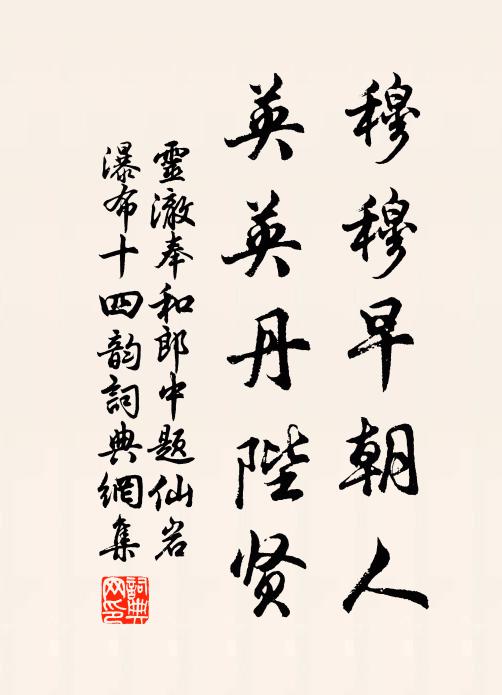 穆穆早朝人
英英丹陛贤
靈澈奉和郎中題仙岩
瀑布十四韵詞典網集
詞典
网印